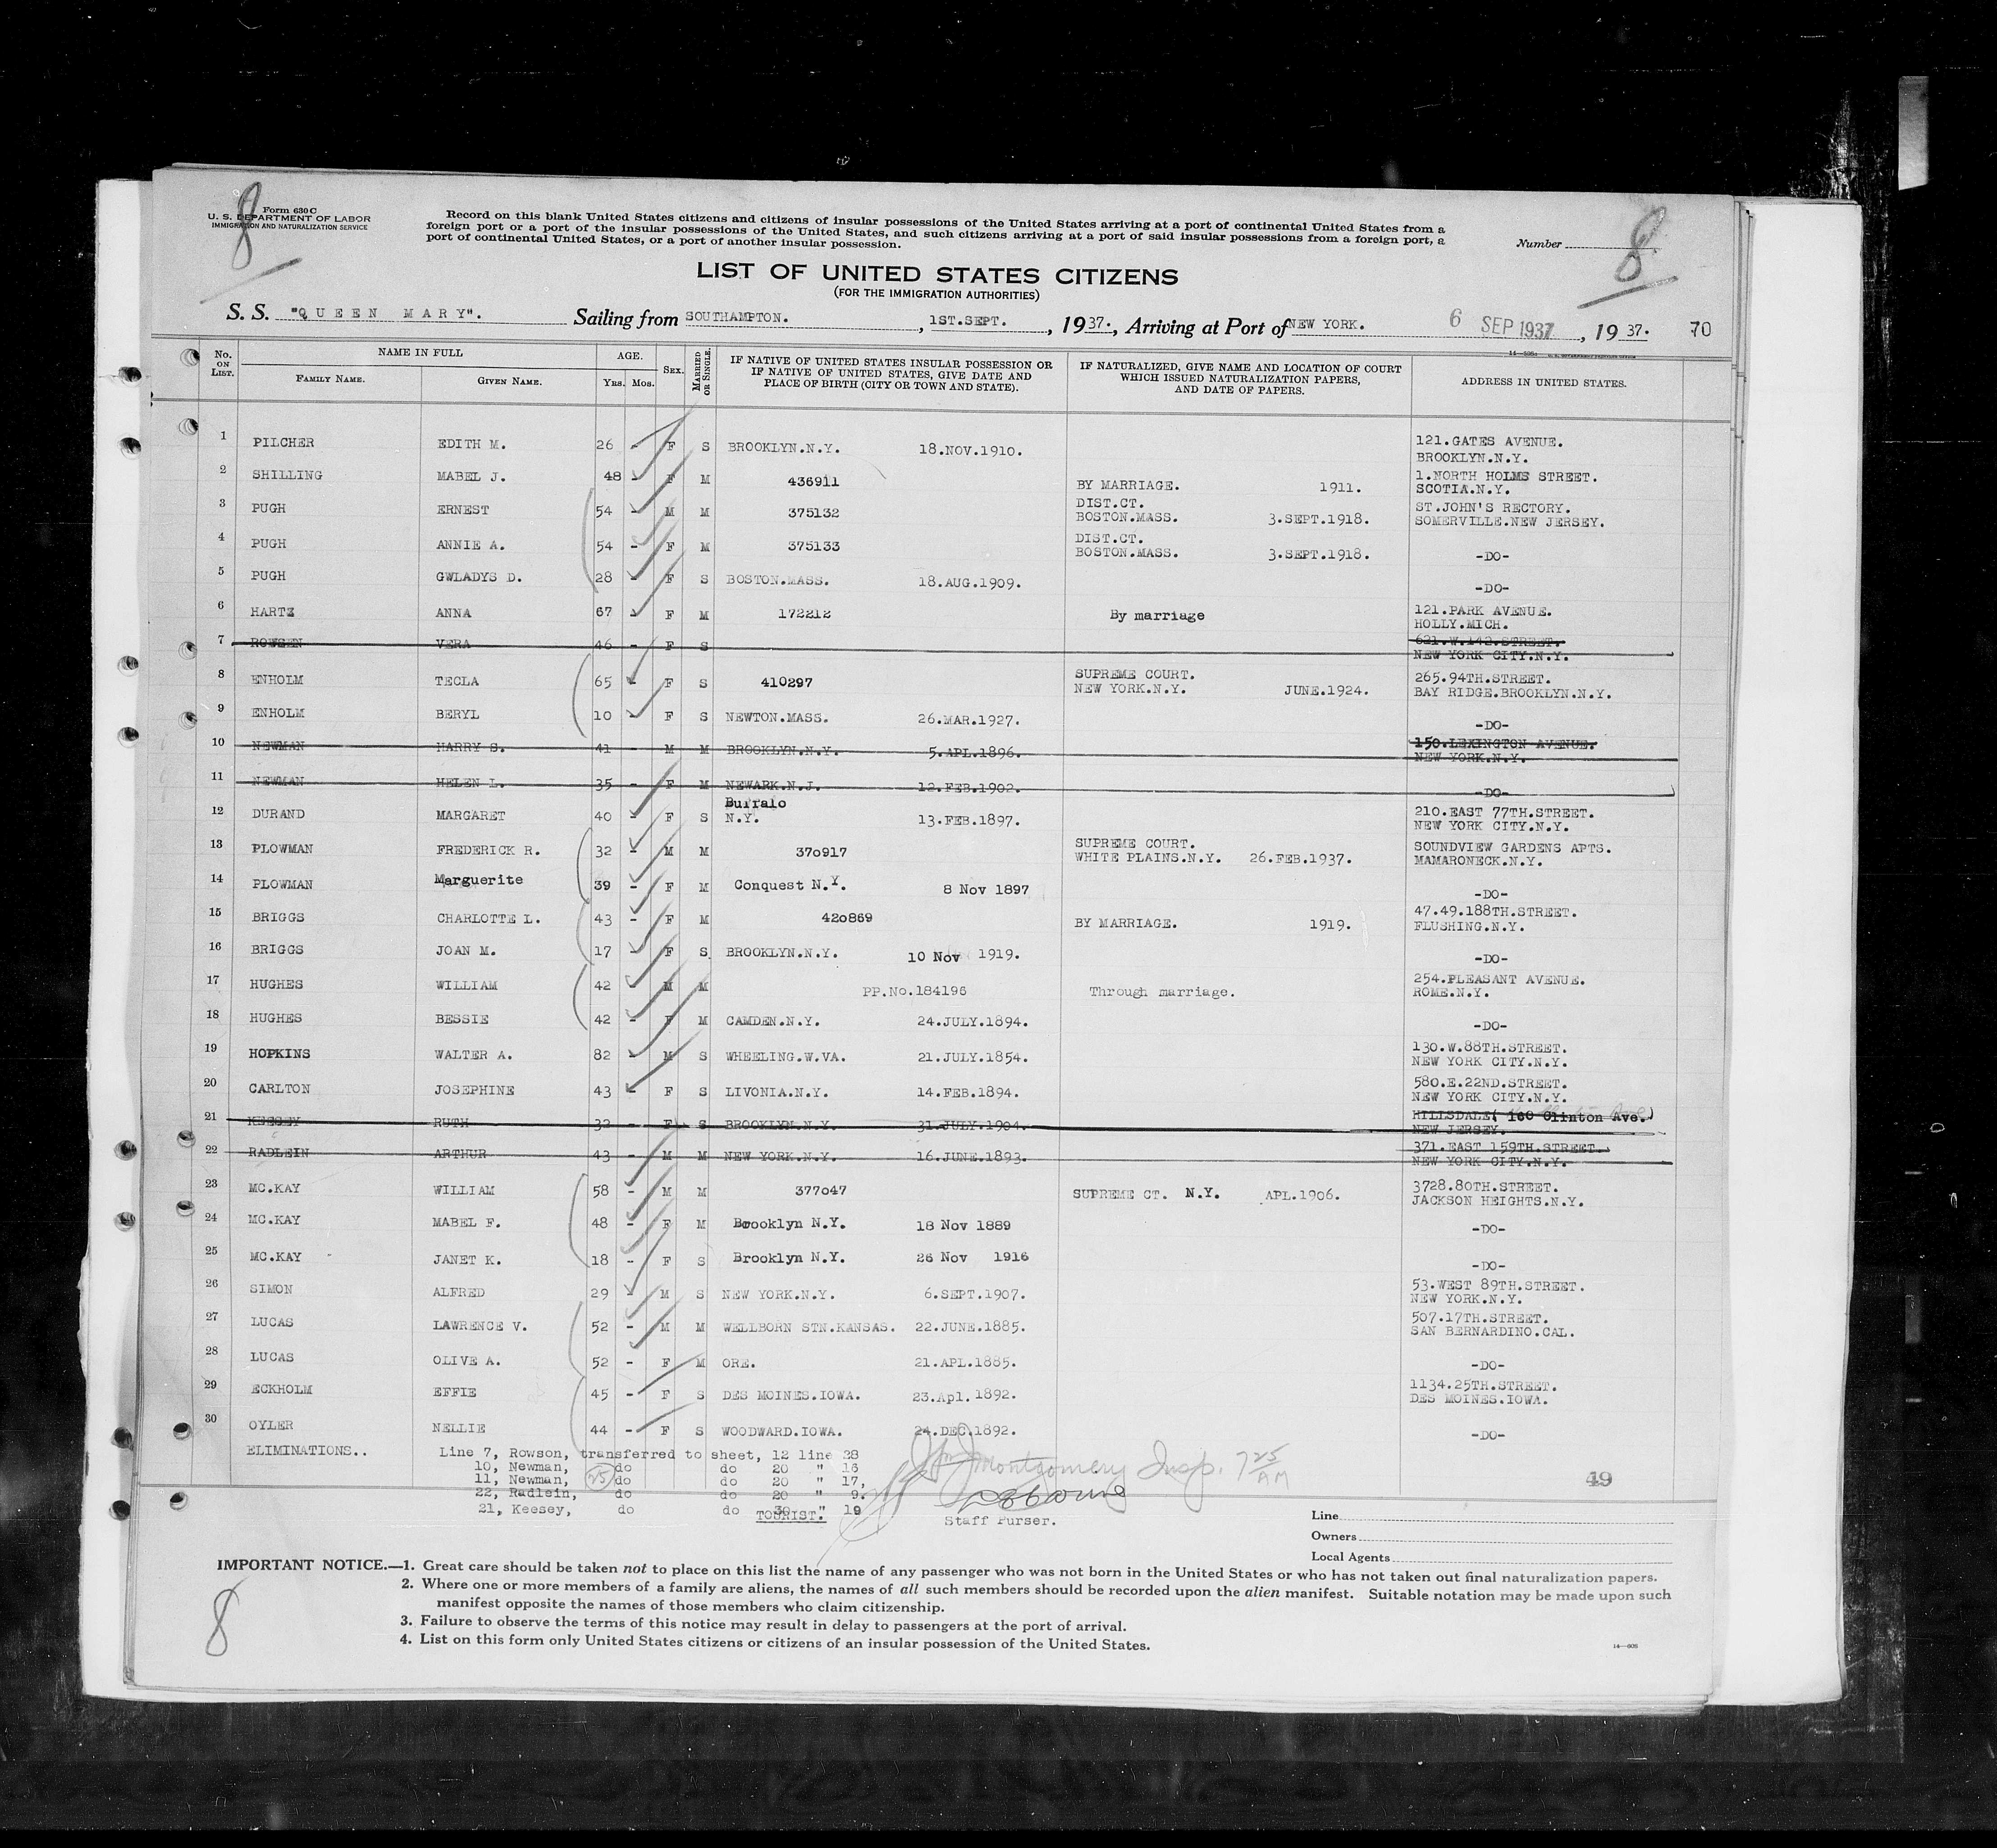 8
Form 630 C
U. S. DEPARTMENT OF LABOR
IMMIGRATION AND NATURALIZATION SERVICE
Record on this blank United States citizens and citizens of insular possessions of the United States arriving at a port of continental United States from a
foreign port or a port of the insular possessions of the United States, and such citizens arriving at a port of said insular possessions from a foreign port, a
port of continental United States, or a port of another insular possession.
Number 8
LIST OF UNITED STATES CITIZENS
(FOR THE IMMIGRATION AUTHORITIES)
S. S. "QUEEN MARY". Sailing from SOUTHAMPTON. , 1ST.SEPT. , 1937. , Arriving at Port of NEW YORK. 6 SEP 1937 , 1937. 70
No. ON LIST. NAME IN FULL AGE. SEX. MARRIED OR SINGLE. IF NATIVE OF UNITED STATES INSULAR POSSESSION OR IF NATIVE OF UNITED STATES, GIVE DATE AND PLACE OF BIRTH (CITY OR TOWN AND STATE). IF NATURALIZED, GIVE NAME AND LOCATION OF COURT WHICH ISSUED NATURALIZATION PAPERS, AND DATE OF PAPERS. ADDRESS IN UNITED STATES.
FAMILY NAME. GIVEN NAME. YRS. MOS.
1 PILCHER EDITH M. 26 - F S BROOKLYN.N.Y. 18.NOV.1910. 121.GATES AVENUE. BROOKLYN.N.Y.
2 SHILLING MABEL J. 48 - F M 436911 BY MARRIAGE. 1911. 1.NORTH HOLMS STREET. SCOTIA.N.Y.
3 PUGH ERNEST 54 - M M 375132 DIST.CT. BOSTON.MASS. 3.SEPT.1918. ST.JOHN'S RECTORY. SOMERVILLE.NEW JERSEY.
4 PUGH ANNIE A. 54 - F M 375133 DIST.CT. BOSTON.MASS. 3.SEPT.1918. -DO-
5 PUGH GWLADYS D. 28 - F S BOSTON.MASS. 18.AUG.1909. -DO-
6 HARTZ ANNA 67 - F M 172212 By marriage 121.PARK AVENUE. HOLLY.MICH.
7 ROWSEN VERA 46 - F S 621.W.142.STREET. NEW YORK CITY.N.Y.
8 ENHOLM TECLA 65 - F S 410297 SUPREME COURT. NEW YORK.N.Y. JUNE.1924. 265.94TH.STREET. BAY RIDGE.BROOKLYN.N.Y.
9 ENHOLM BERYL 10 - F S NEWTON.MASS. 26.MAR.1927. -DO-
10 NEWMAN HARRY S. 41 - M M BROOKLYN.N.Y. 5.APL.1896. 150.LEXINGTON AVENUE. NEW YORK.N.Y.
11 NEWMAN HELEN L. 35 - F M NEWARK.N.J. 12.FEB.1902. -DO-
12 DURAND MARGARET 40 - F S Buffalo N.Y. 13.FEB.1897. 210.EAST 77TH.STREET. NEW YORK CITY.N.Y.
13 PLOWMAN FREDERICK R. 32 - M M 370917 SUPREME COURT. WHITE PLAINS.N.Y. 26.FEB.1937. SOUNDVIEW GARDENS APTS. MAMARONECK.N.Y.
14 PLOWMAN Marguerite 39 - F M Conquest N.Y. 8 Nov 1897 -DO-
15 BRIGGS CHARLOTTE L. 43 - F M 420869 BY MARRIAGE. 1919. 47.49.188TH.STREET. FLUSHING.N.Y.
16 BRIGGS JOAN M. 17 - F S BROOKLYN.N.Y. 10 Nov 1919. -DO-
17 HUGHES WILLIAM 42 - M M PP.No.184196 Through marriage. 254.PLEASANT AVENUE. ROME.N.Y.
18 HUGHES BESSIE 42 - F M CAMDEN.N.Y. 24.JULY.1894. -DO-
19 HOPKINS WALTER A. 82 - M S WHEELING.W.VA. 21.JULY.1854. 130.W.88TH.STREET. NEW YORK CITY.N.Y.
20 CARLTON JOSEPHINE 43 - F S LIVONIA.N.Y. 14.FEB.1894. 580.E.22ND.STREET. NEW YORK CITY.N.Y.
21 KEESEY RUTH 32 - F S BROOKLYN.N.Y. 31.JULY.1904. HILLSDALE( 160 Clinton Ave.) NEW JERSEY.
22 RADLEIN ARTHUR 43 - M M NEW YORK.N.Y. 16.JUNE.1893. 371.EAST 159TH.STREET. NEW YORK CITY.N.Y.
23 MC.KAY WILLIAM 58 - M M 377047 SUPREME CT. N.Y. APL.1906. 3728.80TH.STREET. JACKSON HEIGHTS.N.Y.
24 MC.KAY MABEL F. 48 - F M Brooklyn N.Y. 18 Nov 1889 -DO-
25 MC.KAY JANET K. 18 - F S Brooklyn N.Y. 26 Nov 1916 -DO-
26 SIMON ALFRED 29 - M S NEW YORK.N.Y. 6.SEPT.1907. 53.WEST 89TH.STREET. NEW YORK.N.Y.
27 LUCAS LAWRENCE V. 52 - M M WELLBORN STN.KANSAS. 22.JUNE.1885. 507.17TH.STREET. SAN BERNARDINO.CAL.
28 LUCAS OLIVE A. 52 - F M ORE. 21.APL.1885. -DO-
29 ECKHOLM EFFIE 45 - F S DES MOINES.IOWA. 23.Apl.1892. 1134.25TH.STREET. DES MOINES.IOWA.
30 OYLER NELLIE 44 - F S WOODWARD.IOWA. 24.DEC.1892. -DO-
ELIMINATIONS.. Line 7, Rowson, transferred to sheet, 12 line 28
10, Newman, do do 20 " 16
11, Newman, 25 do do 20 " 17,
22, Radlein, do do 20 " 9.
21, Keesey, do do 30 " 19
Montgomery Insp. 7 25 AM
49
TOURIST.
Staff Purser.
Line
Owners
Local Agents
IMPORTANT NOTICE.—1. Great care should be taken not to place on this list the name of any passenger who was not born in the United States or who has not taken out final naturalization papers.
2. Where one or more members of a family are aliens, the names of all such members should be recorded upon the alien manifest. Suitable notation may be made upon such
manifest opposite the names of those members who claim citizenship.
3. Failure to observe the terms of this notice may result in delay to passengers at the port of arrival.
4. List on this form only United States citizens or citizens of an insular possession of the United States.
8